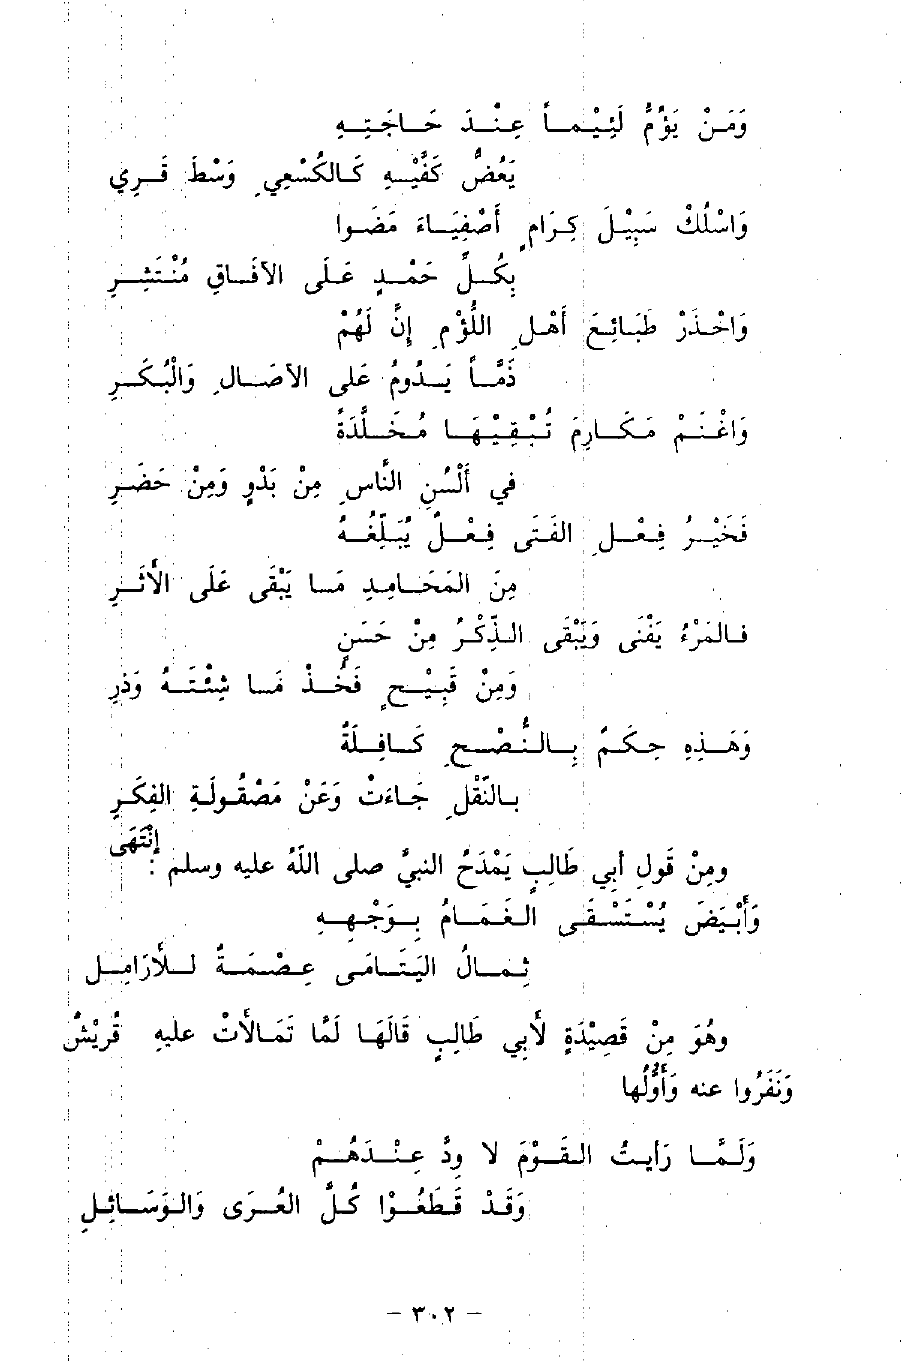 وَمَنْ يَؤُمُّ لَئِيْماً عِنْدَ حَاجَتِهِ
يَعُضُّ كَفَّيْهِ كَالكُسْعِي وَسْطَ قَرِي
وَاسْلُكْ سَبِيْلَ كِرَامٍ أَصْفِيَاءَ مَضَوا
بِكُلِّ حَمْدٍ عَلَى الآفَاقِ مُنْتَشِرِ
وَاحْذَرْ طَبَائِعَ أَهْلِ اللُّؤْمِ إِنَّ لَهُمْ
ذَمّاً يَدُومُ عَلى الآصَالِ وَالْبُكَرِ
وَاغْنَمْ مَكَارِمَ تُبْقِيْهَا مُخَلَّدَةً
في أَلْسُنِ النَّاسِ مِنْ بَدْوٍ وَمِنْ حَضَرِ
فَخَيْرُ فِعْلِ الفَتَى فِعْلٌ يُبَلِّغُهُ
مِنَ المَحَامِدِ مَا يَبْقَى عَلَى الأَثَرِ
فالمَرْءُ يَفْنَى وَيَبْقَى الذِّكْرُ مِنْ حَسَنٍ
وَمِنْ قَبِيْحٍ فَخُذْ مَا شِئْتَهُ وَذَرِ
وَهَذِهِ حِكَمٌ بِالنُّصْحِ كَافِلَةٌ
بالنَّقْلِ جَاءَتْ وَعَنْ مَصْقُولَةِ الفِكَرِ
إنْتَهَى
ومِنْ قَولِ أبي طَالِبٍ يَمْدَحُ النبيَّ صلى اللَّهُ عليه وسلم :
وَأَبْيَضَ يُسْتَسْقَى الغَمَامُ بِوَجْهِهِ
ثِمَالُ اليَتَامَى عِصْمَةٌ لِلأَرَامِلِ
وهُوَ مِنْ قَصِيْدَةٍ لأَبِي طَالِبٍ قَالَهَا لَمَّا تَمَالأَتْ عليهِ قُرَيْشٌ
وَنَفَرُوا عنه وَأَوَّلُها
وَلَمَّا رَأيتُ القَوْمَ لا وِدَّ عِنْدَهُمْ
وَقَدْ قَطَعُوْا كُلَّ العُرَى وَالوَسَائِلِ
- ٣٠٢ -